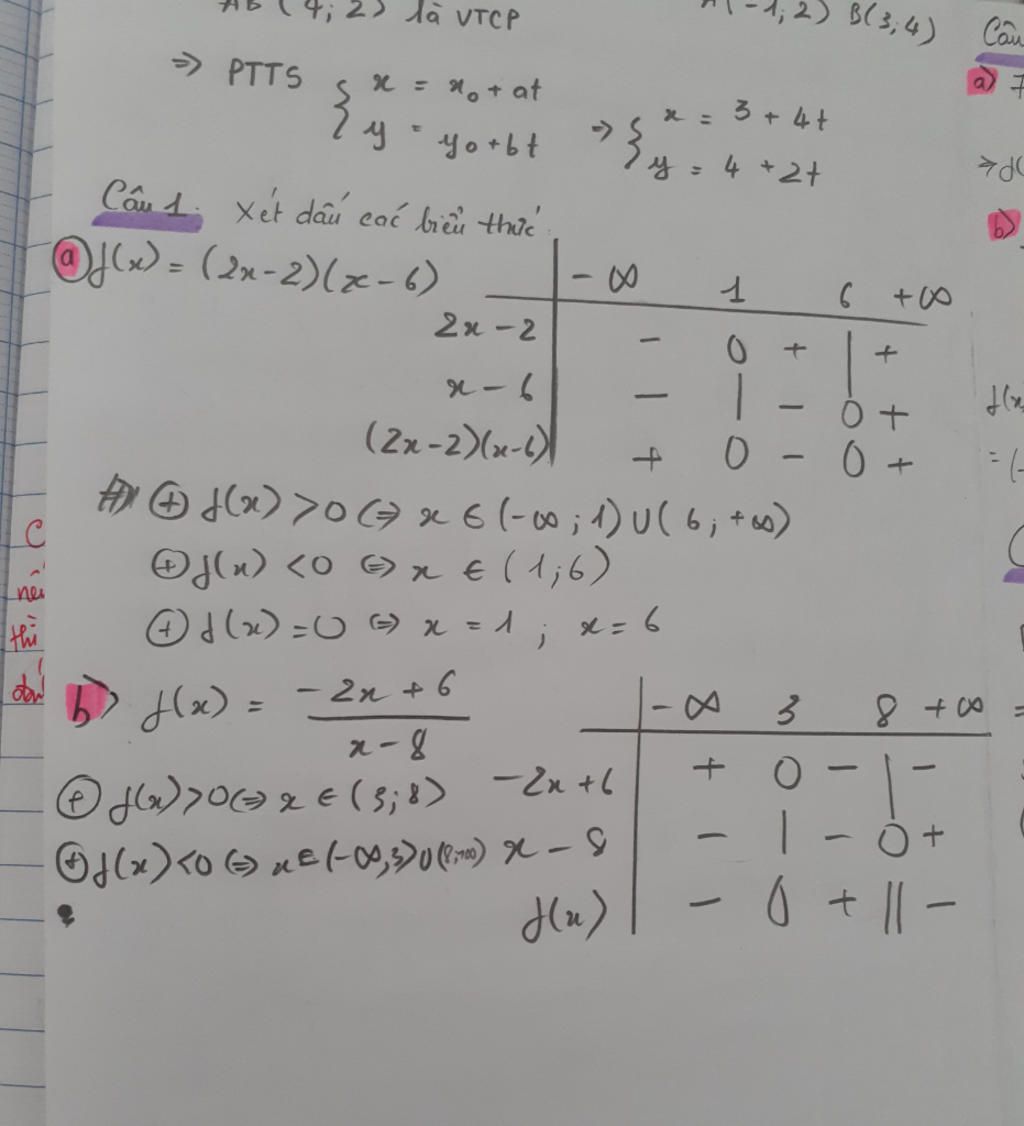 AB (4; 2) là VTCP A(-1; 2) B(3; 4)
⇒ PTTS { x = x₀ + at
y = y₀ + bt ⇒ { x = 3 + 4t
y = 4 + 2t
Câu 1. Xét dấu các biểu thức
a) f(x) = (2x-2)(x-6)
-∞ 1 6 +∞
2x-2 - 0 + | +
x-6 - | - 0 +
(2x-2)(x-6) + 0 - 0 +
⊕ f(x) > 0 ⇔ x ∈ (-∞; 1) ∪ (6; +∞)
⊕ f(x) < 0 ⇔ x ∈ (1; 6)
⊕ f(x) = 0 ⇔ x = 1; x = 6
b) f(x) = (-2x+6)/(x-8)
-∞ 3 8 +∞
⊕ f(x) > 0 ⇔ x ∈ (3; 8)
-2x+6 + 0 - | -
⊕ f(x) < 0 ⇔ x ∈ (-∞, 3) ∪ (8; +∞)
x-8 - | - 0 +
f(x) - 0 + || -
Câu
a)
b)
thì